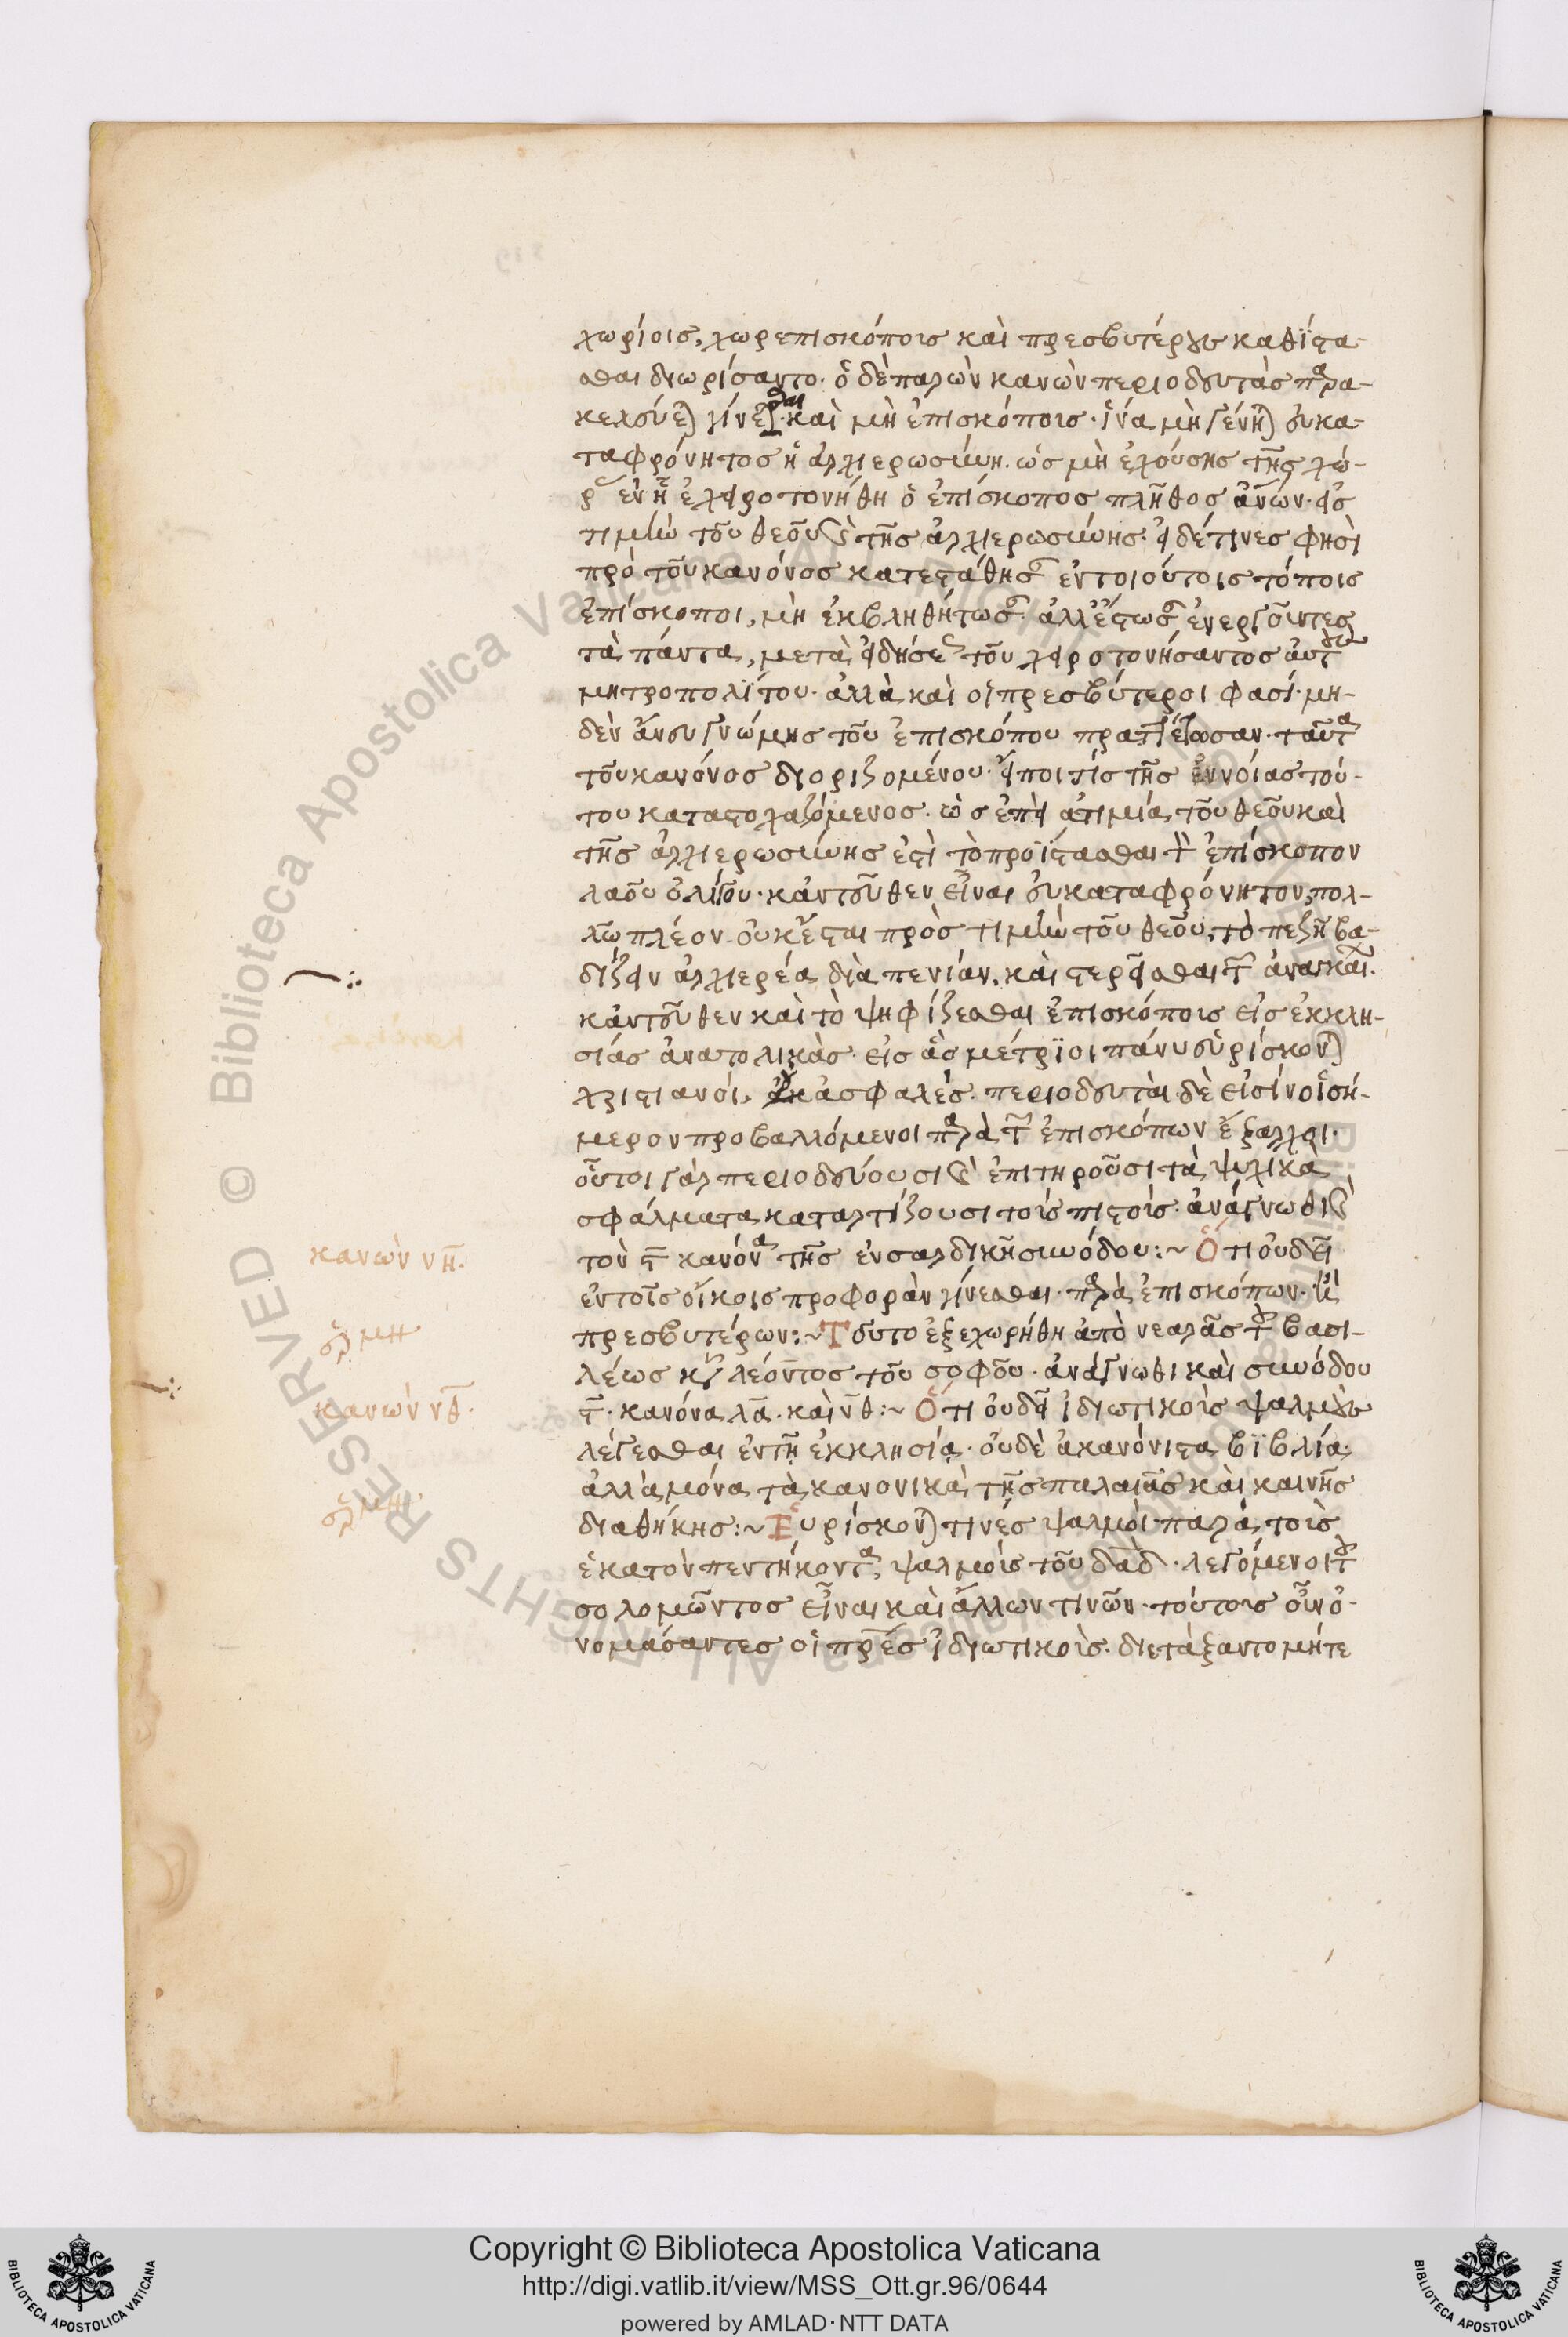 χωρίοις, χωρεπισκόποις καὶ πρεσβυτέρους καθίστα-
σθαι διωρίσαντο. ὁ δὲ παρὼν κανὼν περιοδευτὰς παρα-
κελεύεται γίνεσθαι. καὶ μὴ ἐπισκόποις. ἵνα μὴ γένηται εὐκα-
ταφρόνητος ἡ ἀρχιερωσύνη. ὡς μὴ ἐχούσης τῆς χώ-
ρας ἐν ᾗ ἐχειροτονήθη ὁ ἐπίσκοπος πλῆθος ἀνων. εἰς
τιμὴν τοῦ θεοῦ καὶ τῆς ἀρχιερωσύνης. εἰ δέ τινες φησὶ
πρὸ τοῦ κανόνος κατεστάθησαν ἐν τοιούτοις τόποις
ἐπίσκοποι, μὴ ἐκβληθήτωσαν. ἀλλ' ἔστωσαν ἐνεργοῦντες
τὰ πάντα, μετὰ εἰδήσεως τοῦ χειροτονήσαντος αὐτοὺς
μητροπολίτου. ἀλλὰ καὶ οἱ πρεσβύτεροι φασί. μη-
δὲν ἄνευ γνώμης τοῦ ἐπισκόπου πραττέτωσαν. ταῦτα
τοῦ κανόνος διοριζομένου. εἴποι τίς τῆς ἐννοίας τού-
του καταστοχαζόμενος. ὡς ἐπεὶ ἀτιμία τοῦ θεοῦ καὶ
τῆς ἀρχιερωσύνης ἐστὶ τὸ προΐστασθαι τὸν ἐπίσκοπον
λαοῦ ὀλίγου. κἀντεῦθεν εἶναι εὐκαταφρόνητον, πολ-
λῶ πλέον οὐκ ἔσται πρὸς τιμὴν τοῦ θεοῦ, τὸ πεζῇ βα-
δίζειν ἀρχιερέα διὰ πενίαν. καὶ στερεῖσθαι τῶν ἀναγκαίων.
κἀντεῦθεν καὶ τὸ ψηφίζεσθαι ἐπισκόποις εἰς ἐκκλη-
σίας ἀνατολικὰς. εἰς ἃς μέτριοι πάνυ εὑρίσκονται
χριστιανοί, οὐκ ἀσφαλές. περιοδευταὶ δὲ εἰσὶν οἱ σή-
μερον προβαλλόμενοι παρὰ τῶν ἐπισκόπων ἔξαρχοι.
οὗτοι γὰρ περιοδεύουσι καὶ ἐπιτηροῦσι τὰ ψυχικὰ
σφάλματα καταρτίζουσι τοὺς πιστούς. ἀνάγνωθι καὶ
τὸν ϛ κανόνα τῆς ἐν σαρδικῇ συνόδου :~ Ὅτι οὐ δεῖ
ἐν τοῖς οἴκοις προφορὰν γίνεσθαι. παρὰ ἐπισκόπων. ἢ
πρεσβυτέρων :~ Τοῦτο ἐξεχωρήθη ἀπὸ νεαρᾶς τοῦ βασι-
λέως κυροῦ λέοντος τοῦ σοφοῦ. ἀνάγνωθι καὶ συνόδου
ϛ. κανόνα λα. καὶ νθ :~ Ὅτι οὐ δεῖ ἰδιωτικοὺς ψαλμοὺς
λέγεσθαι ἐν τῇ ἐκκλησίᾳ. οὐδὲ ἀκανόνιστα βιβλία.
ἀλλὰ μόνα τὰ κανονικὰ τῆς παλαιᾶς καὶ καινῆς
διαθήκης :~ Εὑρίσκονται τινές ψαλμοὶ παρὰ τοὺς
ἑκατὸν πεντήκοντα ψαλμοὺς τοῦ δαδ. λεγόμενοι τοῦ
σολομῶντος εἶναι καὶ ἄλλων τινῶν. τούτους οὖν ὀ-
νομάσαντες οἱ πρες ἰδιωτικοὺς. διετάξαντο μήτε
κανὼν νη.
κανὼν νθ.
Copyright © Biblioteca Apostolica Vaticana
http://digi.vatlib.it/view/MSS_Ott.gr.96/0644
powered by AMLAD·NTT DATA